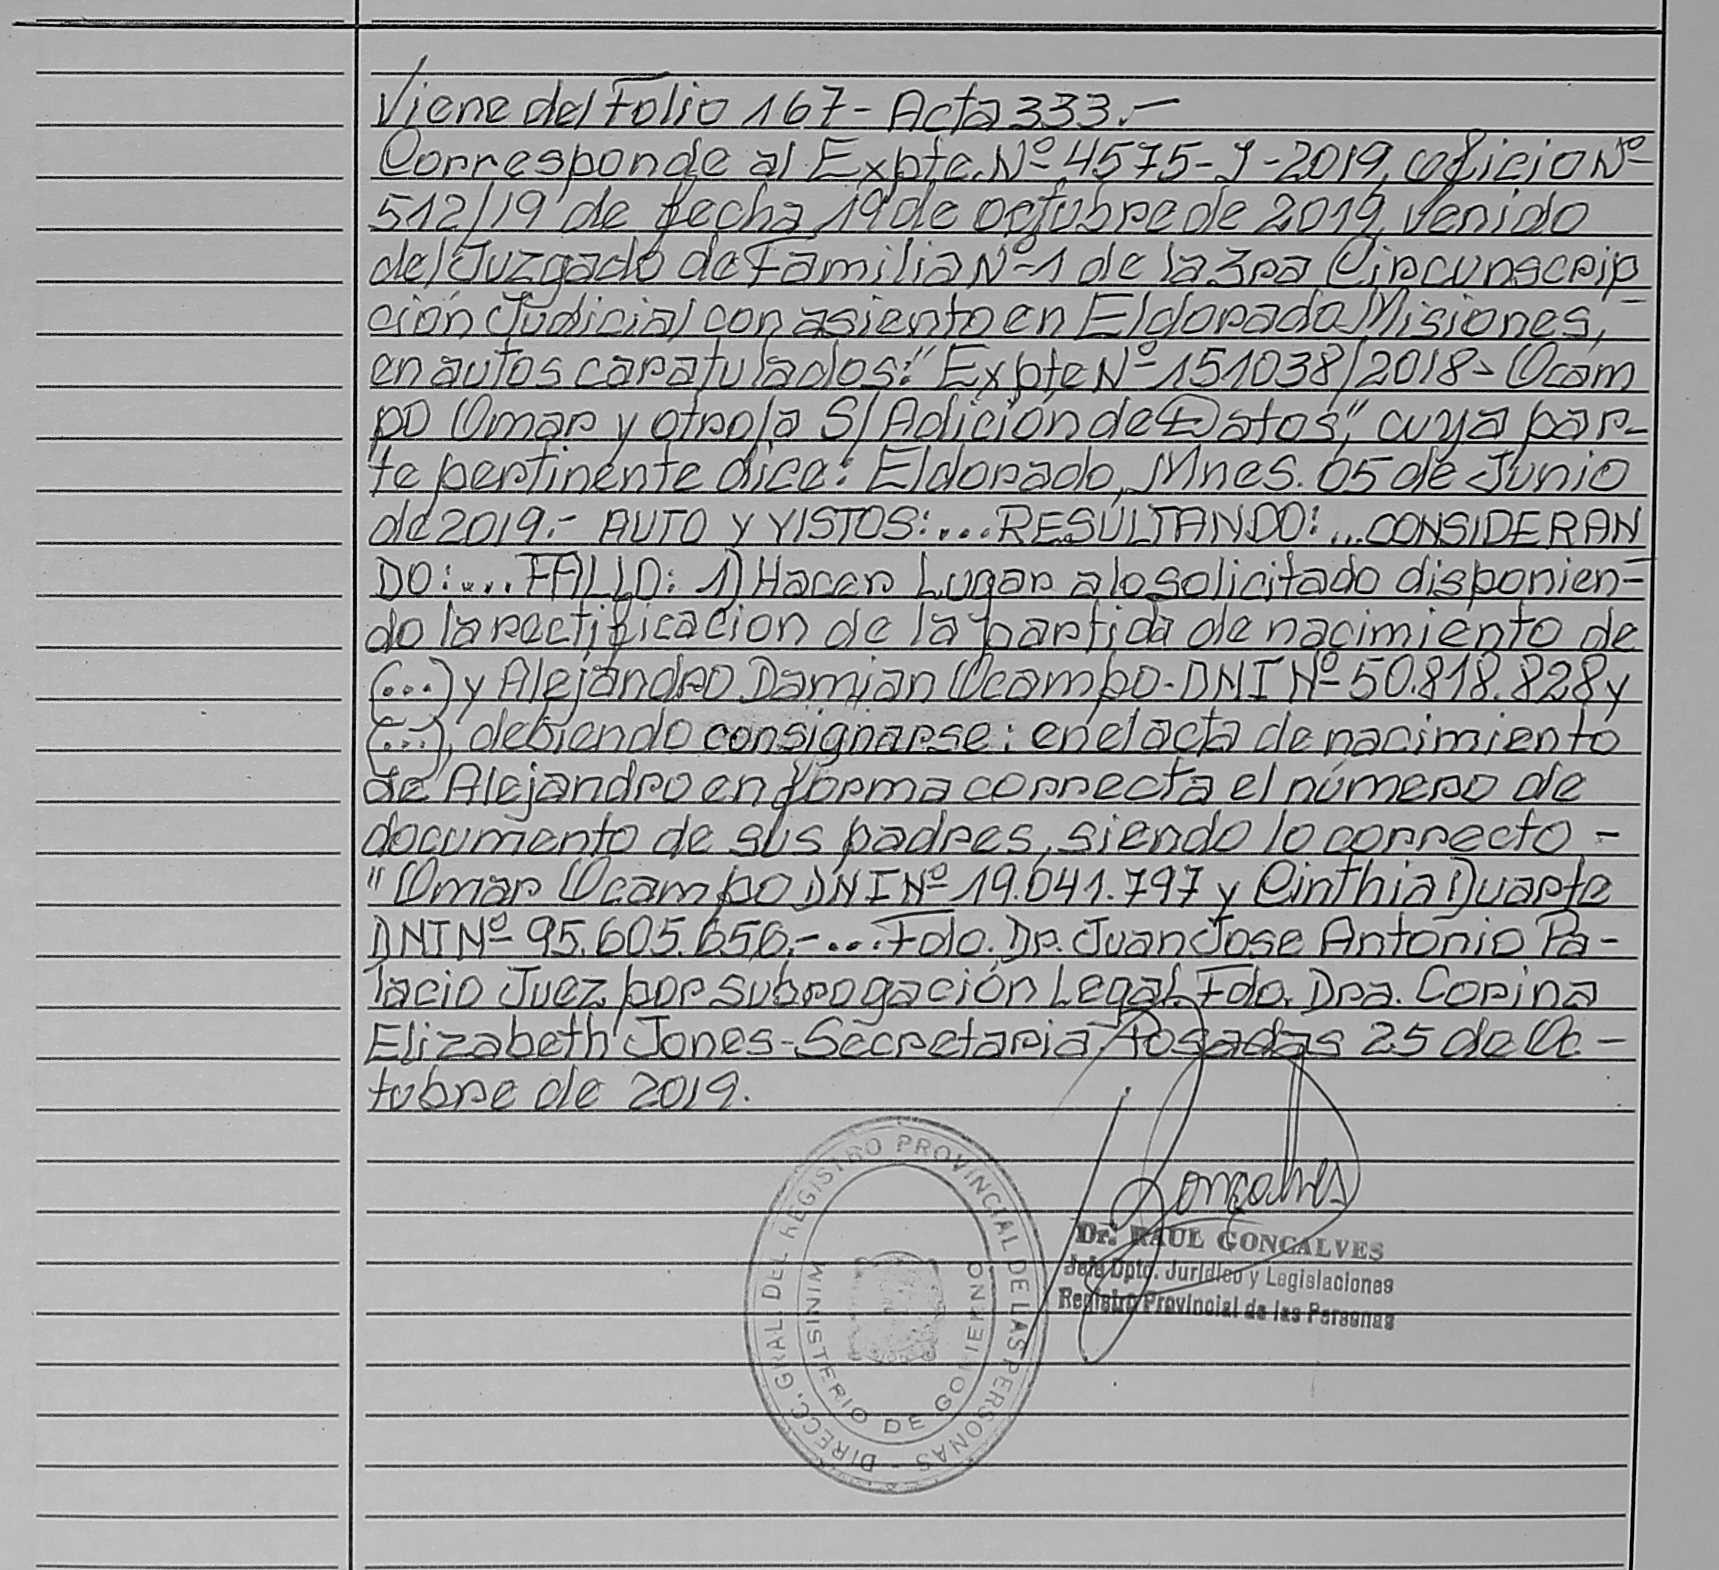 Viene del Folio 167 - Acta 333.-
Corresponde al Expte. Nº 4575-J-2019, oficio Nº
512/19 de fecha 19 de octubre de 2019, venido
del Juzgado de Familia Nº 1 de la 3ra Circunscrip
ción Judicial con asiento en Eldorado Misiones,
en autos caratulados: "Expte Nº 151038/2018- Ocam
po Omar y otro/a S/ Adición de Datos", cuya par-
te pertinente dice: Eldorado, Mnes. 05 de Junio
de 2019.- AUTO Y VISTOS:... RESULTANDO:... CONSIDERAN
DO:... FALLO: 1) Hacer Lugar a lo solicitado disponien-
do la rectificacion de la partida de nacimiento de
(...) y Alejandro Damian Ocampo- DNI Nº 50.818.828 y
(...), debiendo consignarse: en el acta de nacimiento
de Alejandro en forma correcta el número de
documento de sus padres, siendo lo correcto -
"Omar Ocampo DNI Nº 19.041.797 y Cinthia Duarte
DNI Nº 95.605.656.-... Fdo. Dr. Juan Jose Antonio Pa-
lacio Juez por subrogación Legal, Fdo. Dra. Corina
Elizabeth Jones- Secretaria- Posadas 25 de Oc-
tubre de 2019.
DIRECC. GRAL. DEL REGISTRO PROVINCIAL DE LAS PERSONAS -
MINISTERIO DE GOBIERNO
Goncalves
Dr. RAUL GONCALVES
Jefe Dpto. Jurídico y Legislaciones
Registro Provincial de las Personas